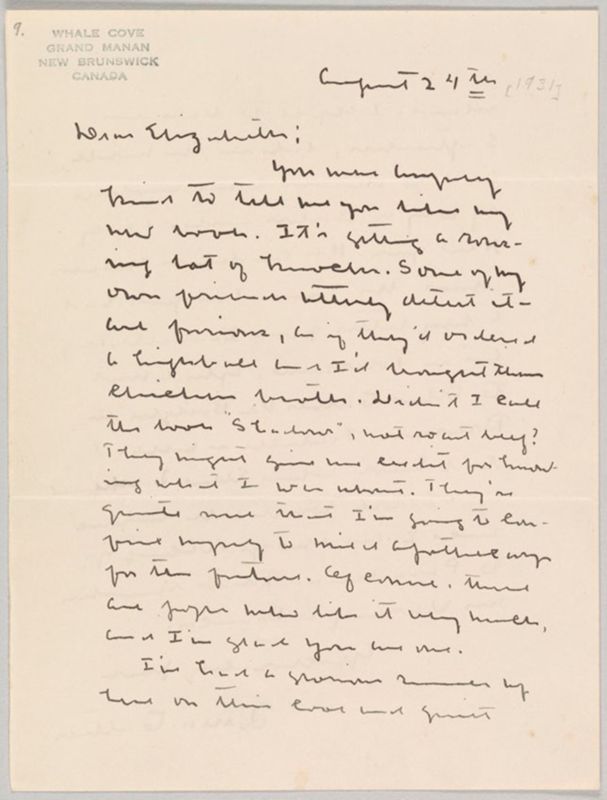 9.
WHALE COVE
GRAND MANAN
NEW BRUNSWICK
CANADA
August 24th [1931]
Dear Elizabeth:
You were
kind to tell me you like my
new book. It's getting a roar-
ing lot of knocks. Some of my
own friends utterly detest it -
are furious, as if they'd ordered
a highball and I'd brought them
chicken broth. Didn't I call
the book "Shadows", not roast beef?
They might give me credit for know-
ing what I was about. They're
quite sure that I'm going to con-
fine myself to
for the future. Of course, there
are people who like it very much,
and I'm glad you are one.
I've had a glorious summer up
here on this cool and quiet